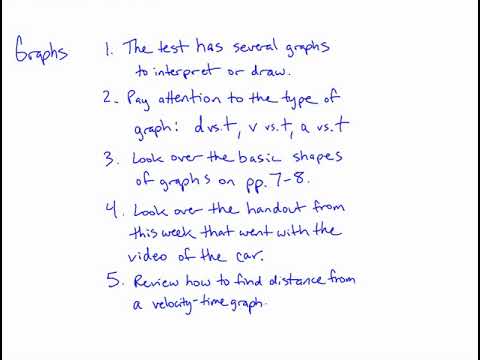 Graphs
1. The test has several graphs
to interpret or draw.
2. Pay attention to the type of
graph: d vs.t, v vs.t, a vs.t
3. Look over the basic shapes
of graphs on pp. 7-8.
4. Look over the handout from
this week that went with the
video of the car.
5. Review how to find distance from
a velocity-time graph.